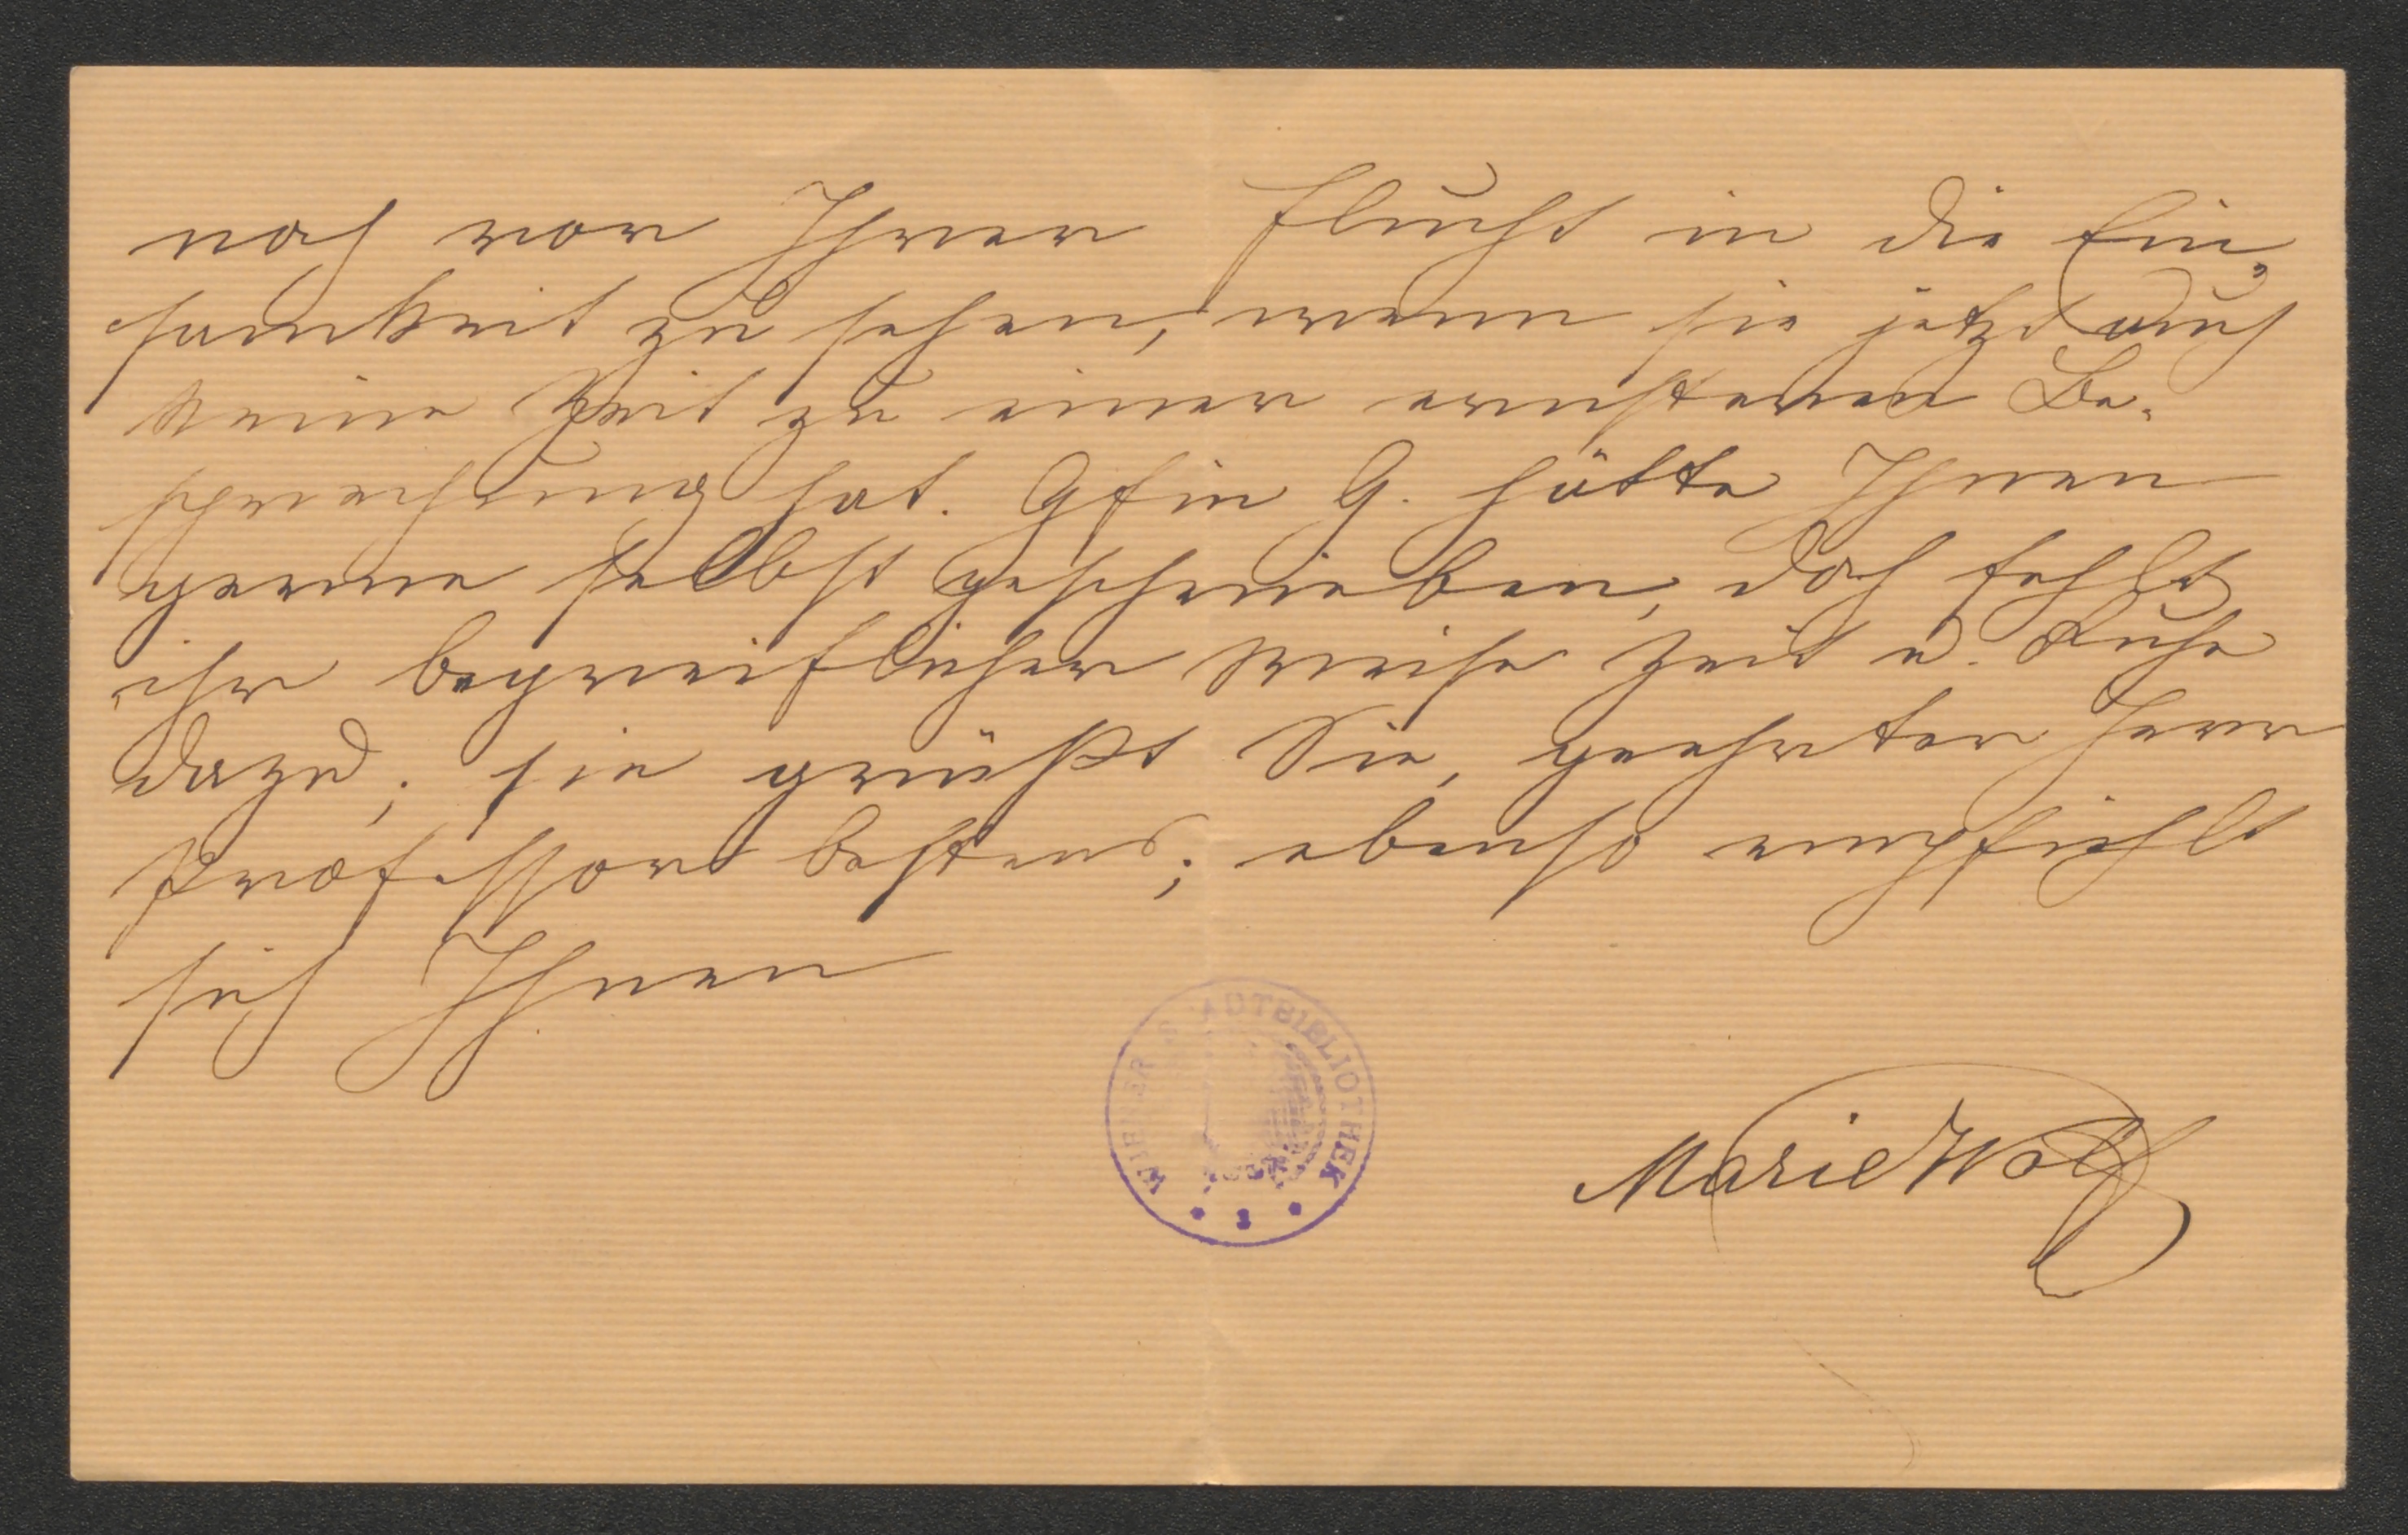 noch vor Ihrer Flucht in die Ein-
samkeit zu sehen, wenn sie jetzt auch
keine Zeit zu einer ernsteren Be-
sprechung hat. Gfin G. hätte Ihnen
gerne selbst geschrieben, doch fehlt
ihr begreiflicher Weise Zeit u. Ruhe
dazu; sie grüßt Sie, geehrter Herr
Professor bestens; ebenso empfiehlt
sich Ihnen
WIENER STADTBIBLIOTHEK
Marie Wolf